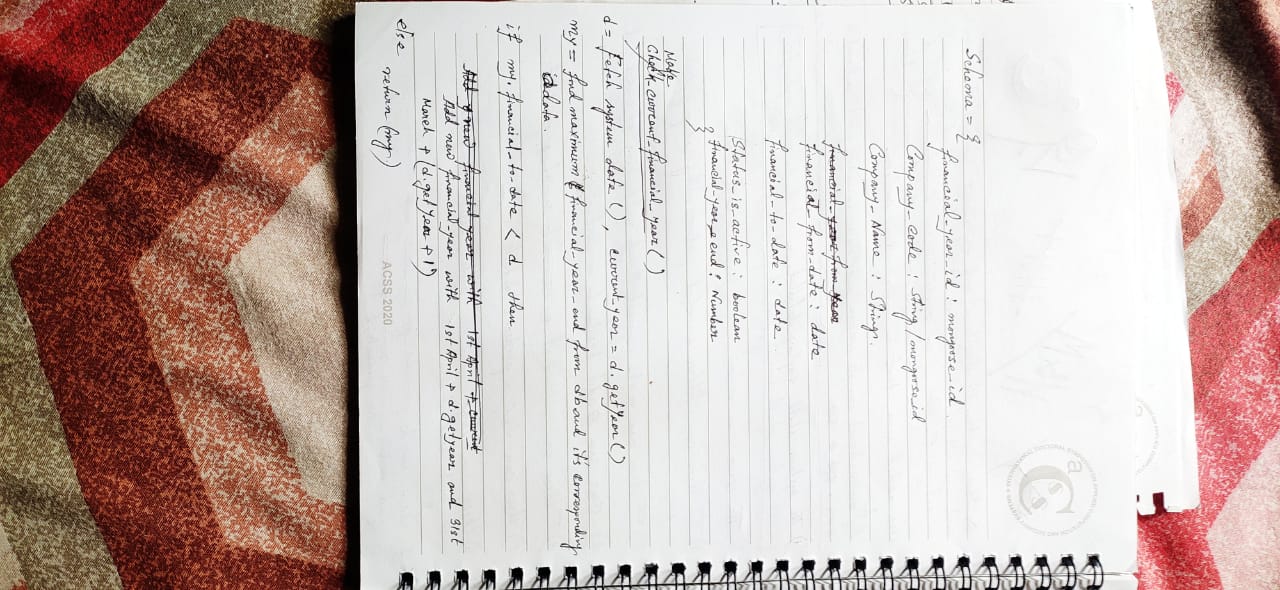 Schema = {
financial-year-id : mongoose-id
Company-code : string/mongoose-id
Company-Name : String
financial-from-date : date
financial-to-date : date
Status-is-active : boolean
financial-year-end : Number
}
Make
Check current-financial-year()
d = fetch system date(), current-year = d.getYear()
my = find maximum financial-year-end from db and its corresponding
data.
if my.financial-to-date < d then
Add new financial-year with 1st April + d.getyear and 31st
March + (d.getYear + 1)
else return (my)
ACSS 2020